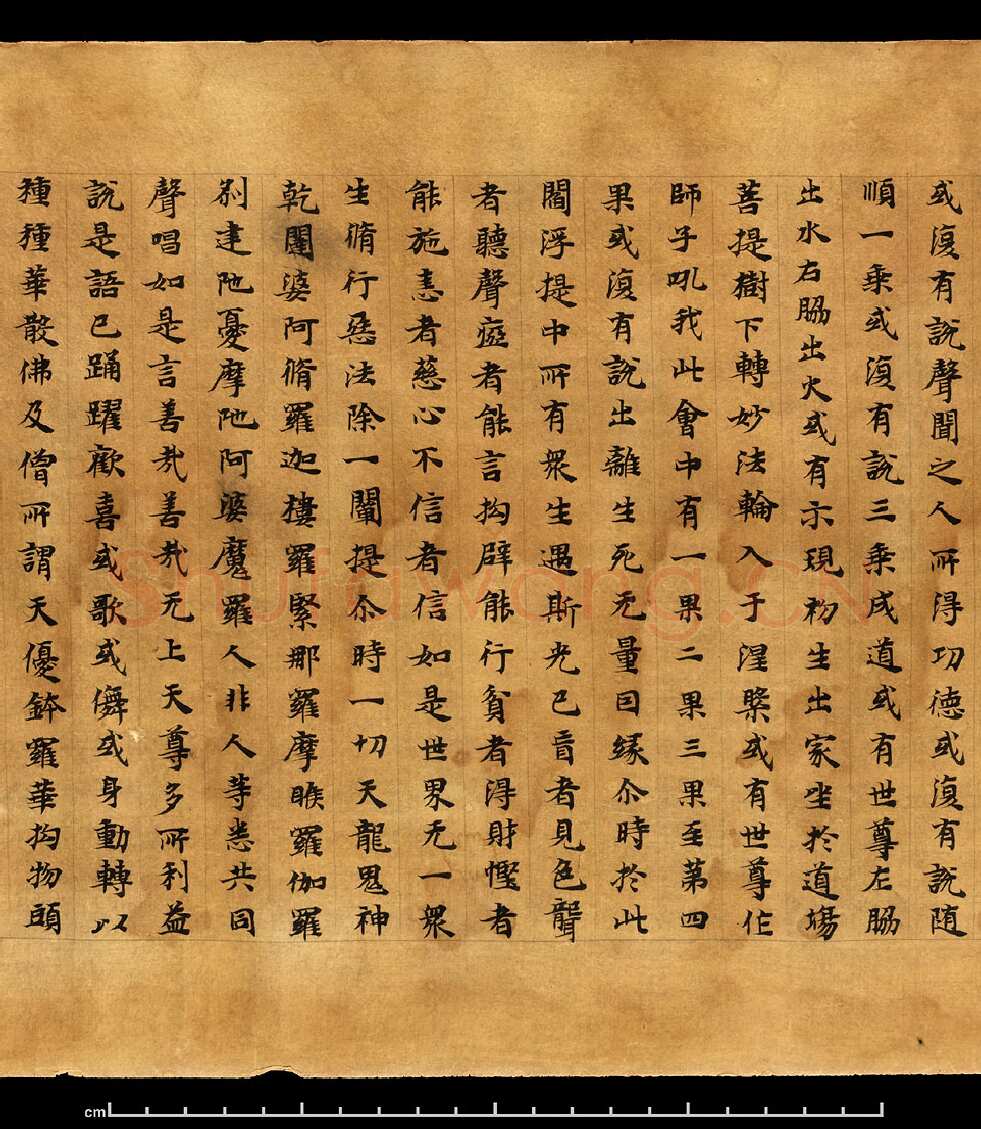 或復有說聲聞之人所得功德或復有說隨
順一乘或復有說三乘成道或有世尊左脇
出水右脇出火或有示現初生出家坐於道場
菩提樹下轉妙法輪入于涅槃或有世尊作
師子吼我此會中有一果二果三果至第四
果或復有說出離生死无量因緣尒時於此
閻浮提中所有衆生遇斯光已盲者見色聾
者聽聲瘂者能言拘躃能行貧者得財慳者
能施恚者慈心不信者信如是世界无一衆
生脩行惡法除一闡提尒時一切天龍鬼神
乾闥婆阿脩羅迦樓羅緊那羅摩睺羅伽羅
刹建陁憂摩陁阿婆魔羅人非人等悉共同
聲唱如是言善哉善哉无上天尊多所利益
說是語已踊躍歡喜或歌或儛或身動轉以
種種華散佛及僧所謂天優鉢羅華拘物頭
shufawang.CN
cm